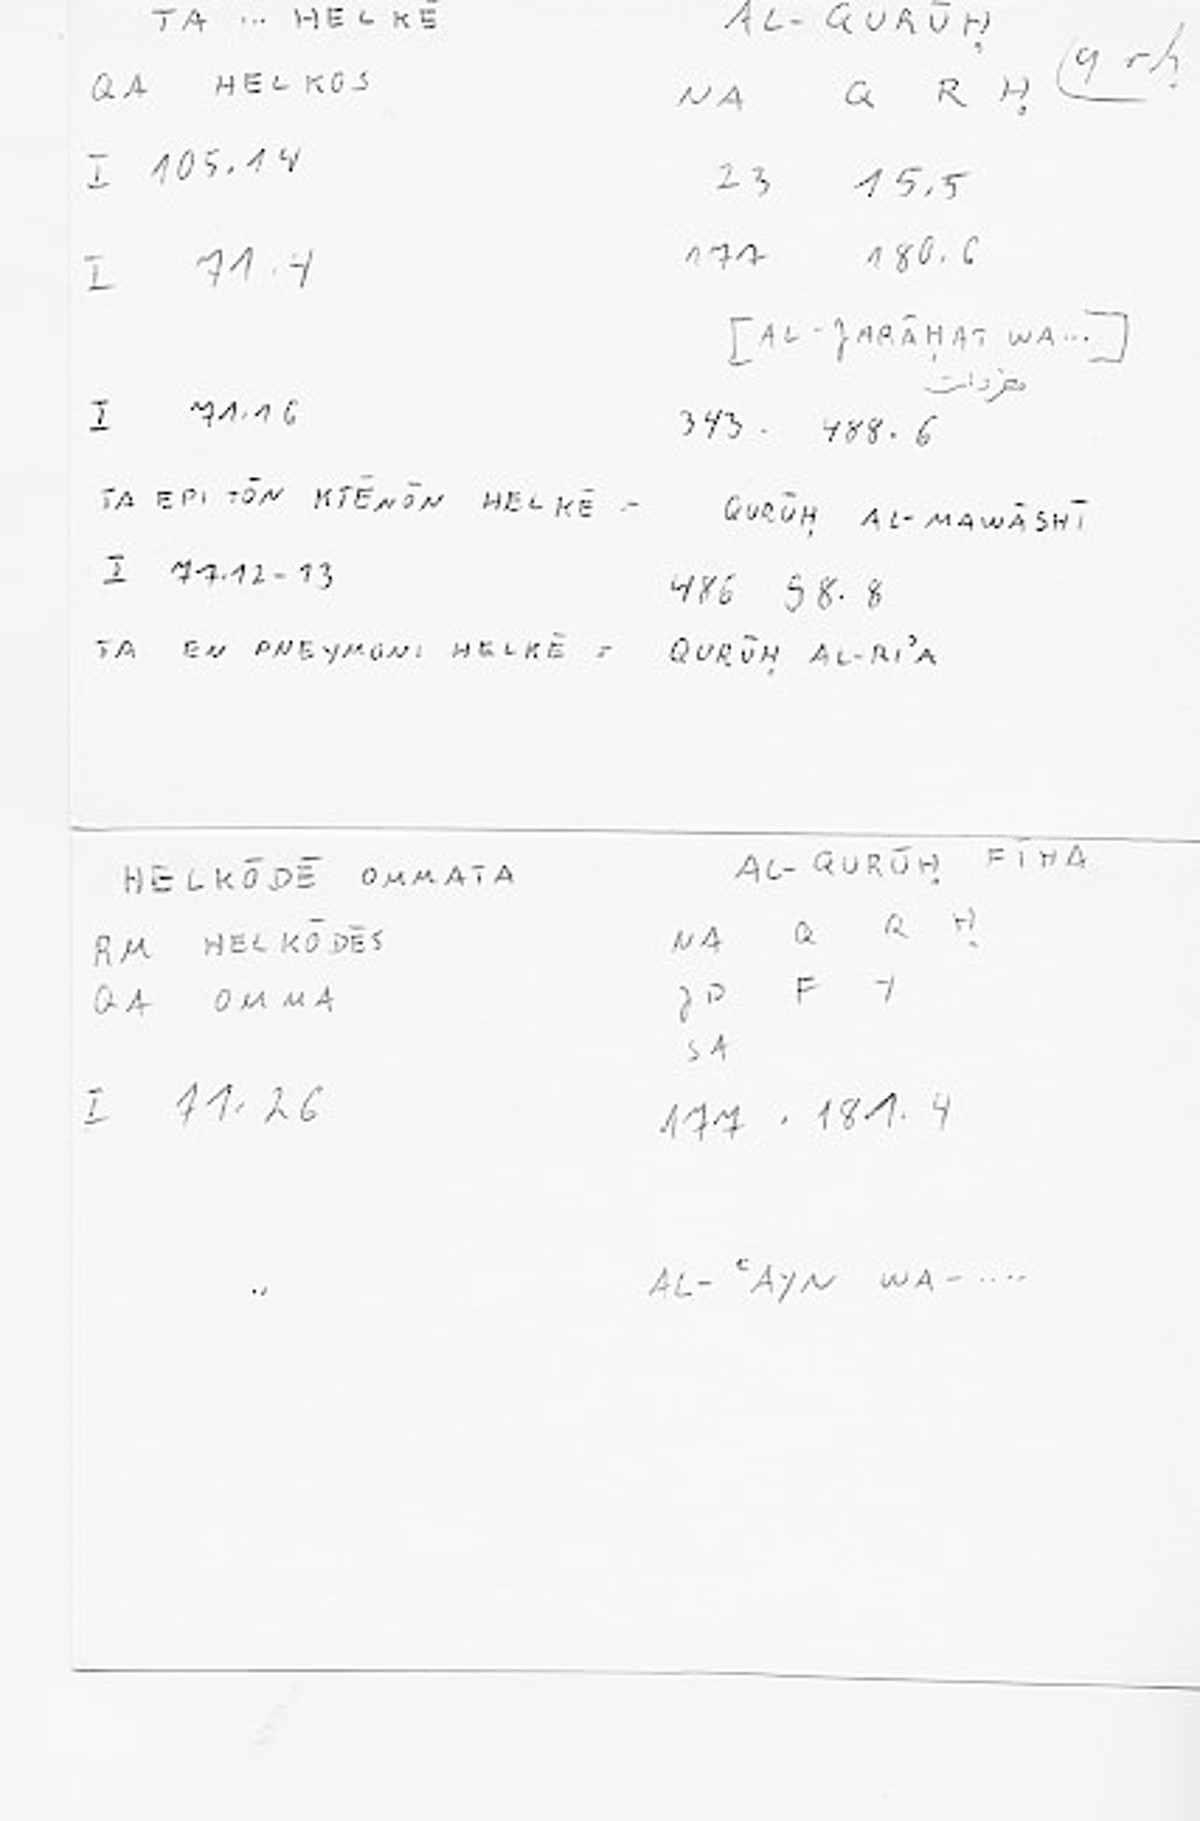 TA ... HELKĒ AL-QURŪḤ
QA HELKOS NA Q R Ḥ (qrḥ
I 105.14 23 15.5
I 71.4 177 180.6
[AL-JARĀḤAT WA...]
I 71.16 343. 488.6
TA EPI TŌN KTĒNŌN HELKĒ = QURŪḤ AL-MAWĀSHĪ
I 77.12-13 486 98.8
TA EN PNEYMONI HELKĒ = QURŪḤ AL-RIʾA
HELKŌDĒ OMMATA AL-QURŪḤ FĪHA
RM HELKŌDĒS NA Q R Ḥ
QA OMMA JD F Y
SA
I 71.26 177 . 181.4
" AL-ʿAYN WA-....